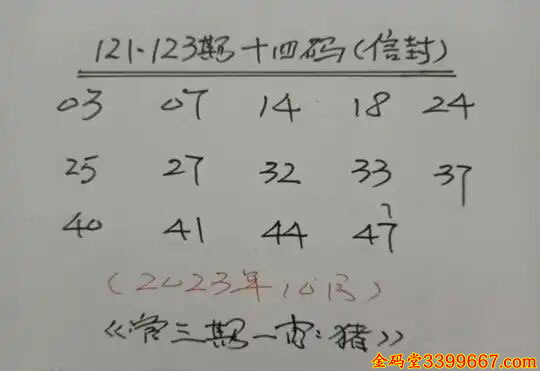 121-123期十四码(信封)
03 07 14 18 24
25 27 32 33 37
40 41 44 47
(2023年10月)
《管三期一肖:猪》
金码堂3399667.com